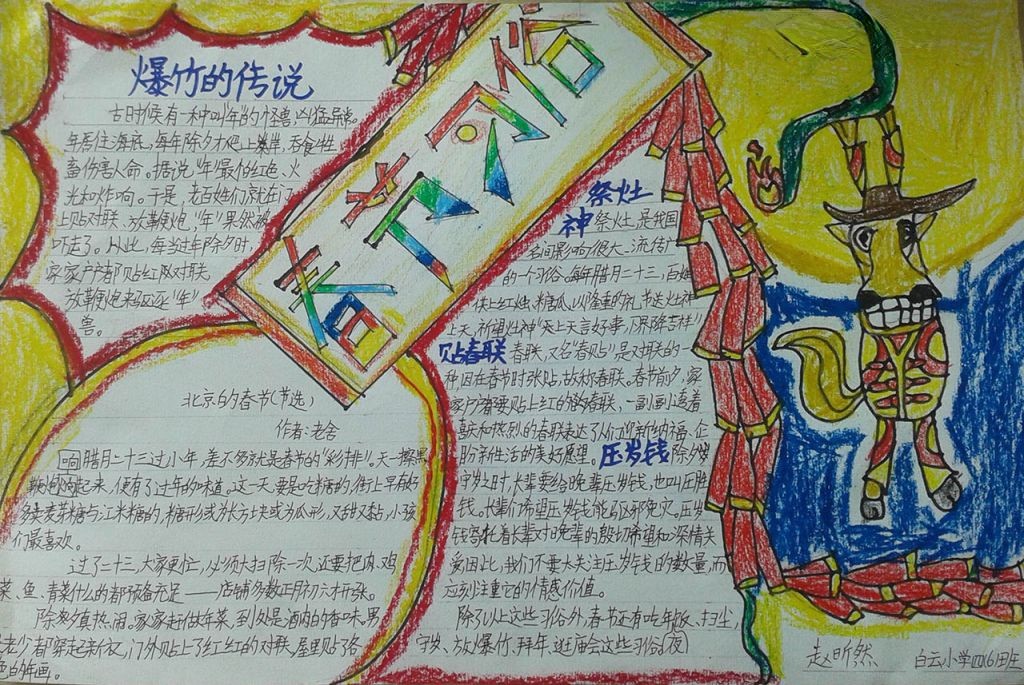 春节习俗
爆竹的传说
古时候有一种叫“年”的怪兽,凶猛异常。
年居住海底,每年除夕才爬上岸,吞食牲
畜伤害人命。据说“年”最怕红色、火
光和炸响。于是,老百姓们家就在门
上贴对联、放鞭炮,“年”果然被
吓走了。从此,每当过年除夕时,
家家户户都贴红对联、
放鞭炮来驱逐“年”
兽。
北京的春节(节选)
作者:老舍
腊月二十三过小年,差不多就是春节的“彩排”。天一擦黑
鞭炮响起来,便有了过年的味道。这一天,要是吃糖的,街上早有好
多卖麦芽糖与江米糖的,糖形或为长方块或为瓜形,又甜又黏,小孩
们最喜欢。
过了二十三,大家更忙,必须大扫除一次,还要把肉、鸡、
菜、鱼、青菜什么的都预备充足——店铺多数正月初六才开张。
除夕真热闹。家家赶做年菜,到处是酒肉的香味。男
女老少都穿起新衣,门外贴上了红红的对联,屋里贴了各
色的年画。
祭灶
神 祭灶,是我国
名间影响很大、流传广
的一个习俗。每年腊月二十三,百姓
供上红烛、糖瓜,以隆重的礼节送灶神
上天,祈望灶神“天上天言好事,下界降吉祥”
贴春联 春联,又名“春贴”是对联的一
种,因在春节时张贴,故称春联。春节前夕,家
家户户都要贴上红的春联,一副副透着
喜庆和热烈的春联表达了人们迎新纳福、企
盼新生活的美好愿望。压岁钱 除夕
守岁之时,长辈要给晚辈压岁钱,也叫压胜
钱。长辈们希望压岁钱能驱邪免灾。压岁
钱寄托着长辈对晚辈的殷切希望和深情关
爱,因此,我们不要太关注压岁钱的数量,而
应该注重它的情感价值。
除了以上这些习俗外,春节还有吃年饭、扫尘、
守岁、放爆竹、拜年、逛庙会这些习俗(夜)
赵昕然 白云小学四(6)班